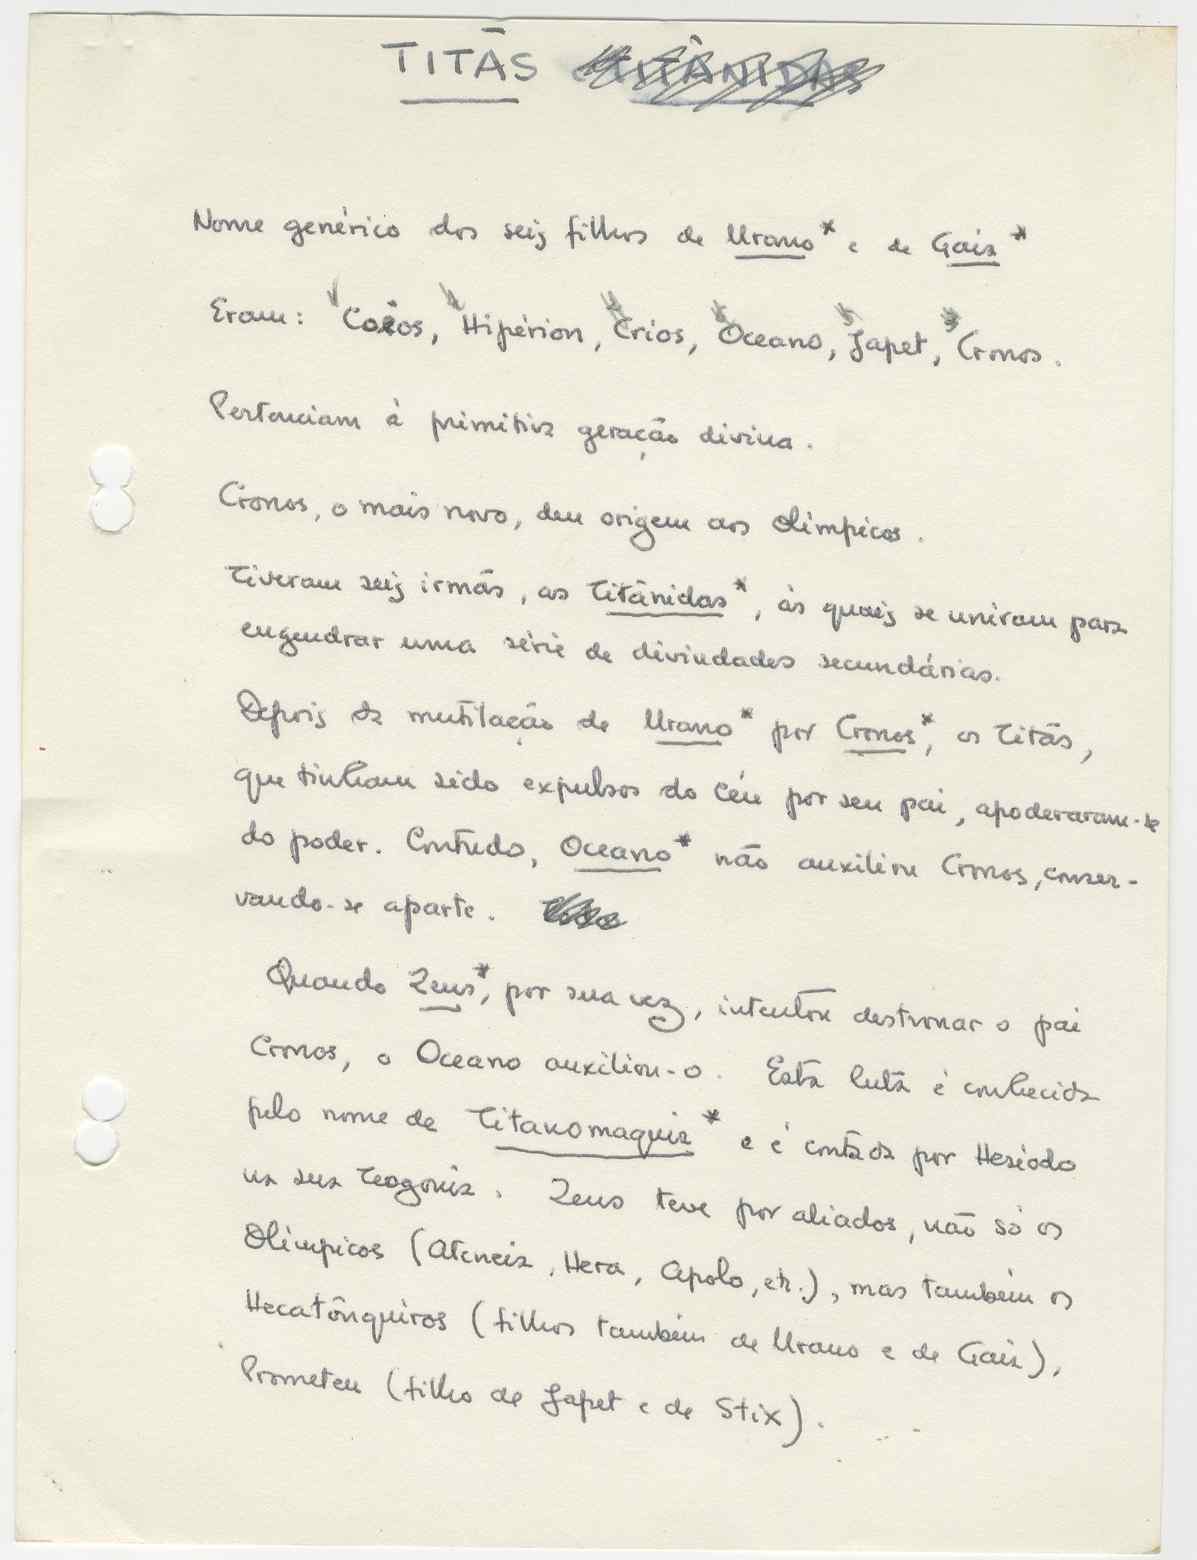 TITÃS
Nome genérico dos seis filhos de Urano* e de Gaia*
Eram: Coios, Hipérion, Crios, Oceano, Japet, Cronos.
Pertenciam à primitiva geração divina.
Cronos, o mais novo, deu origem aos Olímpicos.
Tiveram seis irmãs, as Titânidas*, às quais se uniram para
engendrar uma série de divindades secundárias.
Depois da mutilação de Urano* por Cronos*, os Titãs,
que tinham sido expulsos do céu por seu pai, apoderaram-se
do poder. Contudo, Oceano* não auxiliou Cronos, conser-
vando-se aparte.
Quando Zeus*, por sua vez, intentou destronar o pai
Cronos, o Oceano auxiliou-o. Esta luta é conhecida
pelo nome de Titanomaquia* e é contada por Hesíodo
na sua Teogonia. Zeus teve por aliados, não só os
Olímpicos (Ateneia, Hera, Apolo, etc.), mas também os
Hecatônquiros (filhos também de Urano e de Gaia),
Prometeu (filho de Japet e de Stix).